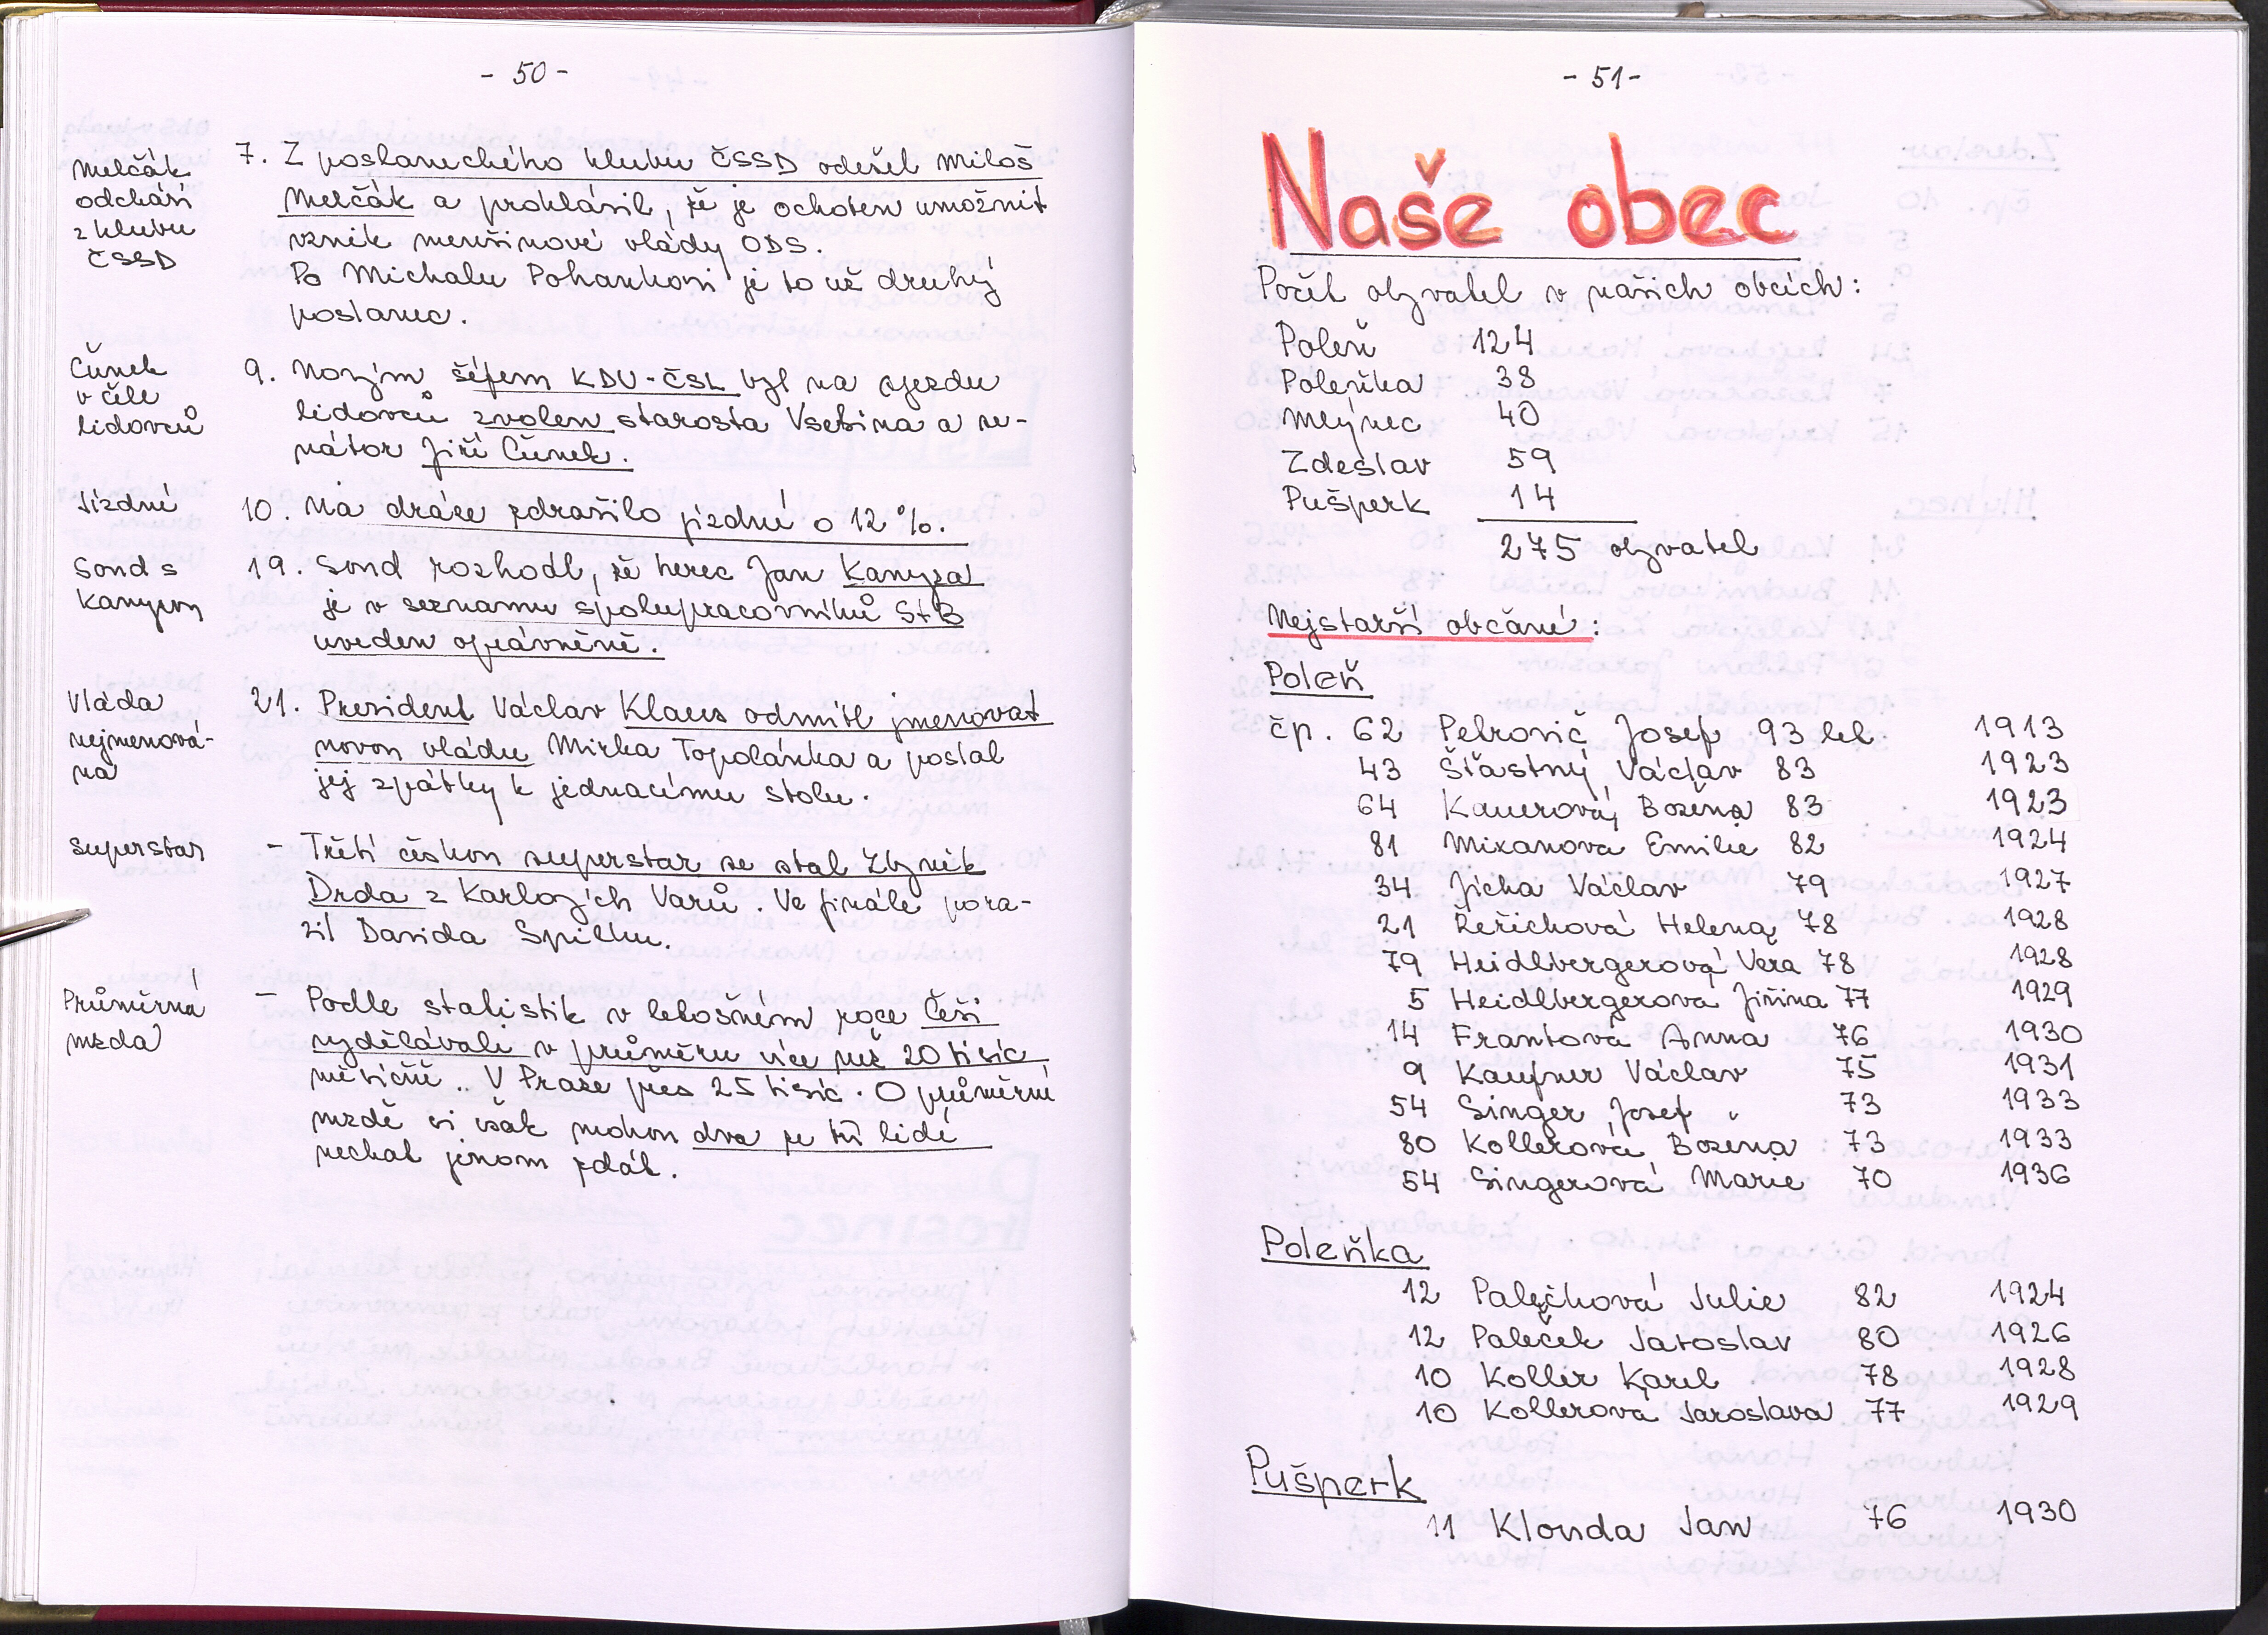 - 50 -
Melčák
odchází
z klubu
ČSSD
7. Z poslaneckého klubu ČSSD odešel Miloš
Melčák a prohlásil, že je ochoten umožnit
vznik menšinové vlády ODS.
Po Michalu Pohankovi je to už druhý
poslanec.
Čunek
v čele
lidovců
9. Novým šéfem KDU-ČSL byl na sjezdu
lidovců zvolen starosta Vsetína a se-
nátor Jiří Čunek.
Jízdné
10. Na dráze zdražilo jízdné o 12 %.
Soud s
Kanyzou
19. Soud rozhodl, že herec Jan Kanyza
je v seznamu spolupracovníků StB
uveden oprávněně.
Vláda
nejmenová-
na
21. President Václav Klaus odmítl jmenovat
novou vládu Mirka Topolánka a poslal
jej zpátky k jednacímu stolu.
superstar
- Třetí českou superstar se stal Zbyněk
Drda z Karlových Varů. Ve finále pora-
zil Davida Spilku.
Průměrná
mzda
- Podle statistik v letošním roce Češi
vydělávali v průměru více než 20 tisíc
měsíčně.. V Praze přes 25 tisíc. O průměrné
mzdě si však mohou dva ze tří lidí
nechat jenom zdát.
- 51 -
Naše obec
Počet obyvatel v našich obcích:
Poleň 124
Poleňka 38
Mlýnec 40
Zdeslav 59
Pušperk 14
275 obyvatel
Nejstarší občané:
Poleň
čp. 62 Petrovič Josef 93 let 1913
43 Šťastný Václav 83 1923
64 Kauerová Božena 83 1923
81 Mixanová Emilie 82 1924
34 Jícha Václav 79 1927
21 Řeřichová Helena 78 1928
79 Heidlbergerová Věra 78 1928
5 Heidlbergerová Jiřina 77 1929
14 Frantová Anna 76 1930
9 Kaufner Václav 75 1931
54 Singer Josef 73 1933
80 Kollerová Božena 73 1933
54 Singerová Marie 70 1936
Poleňka
12 Palečková Julie 82 1924
12 Paleček Jaroslav 80 1926
10 Koller Karel 78 1928
10 Kollerová Jaroslava 77 1929
Pušperk
11 Klouda Jan 76 1930